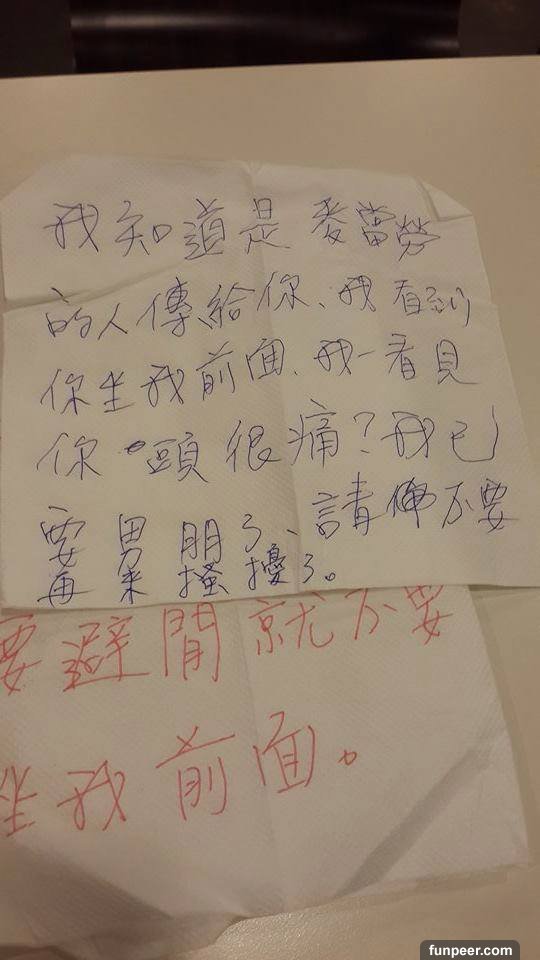 我知道是麥當勞
的人傳給你、我看到
你坐我前面、我一看見
你頭很痛?我已
要男朋了、請不要
再来搔擾了。
要避開就不要
坐我前面。
funpeer.com